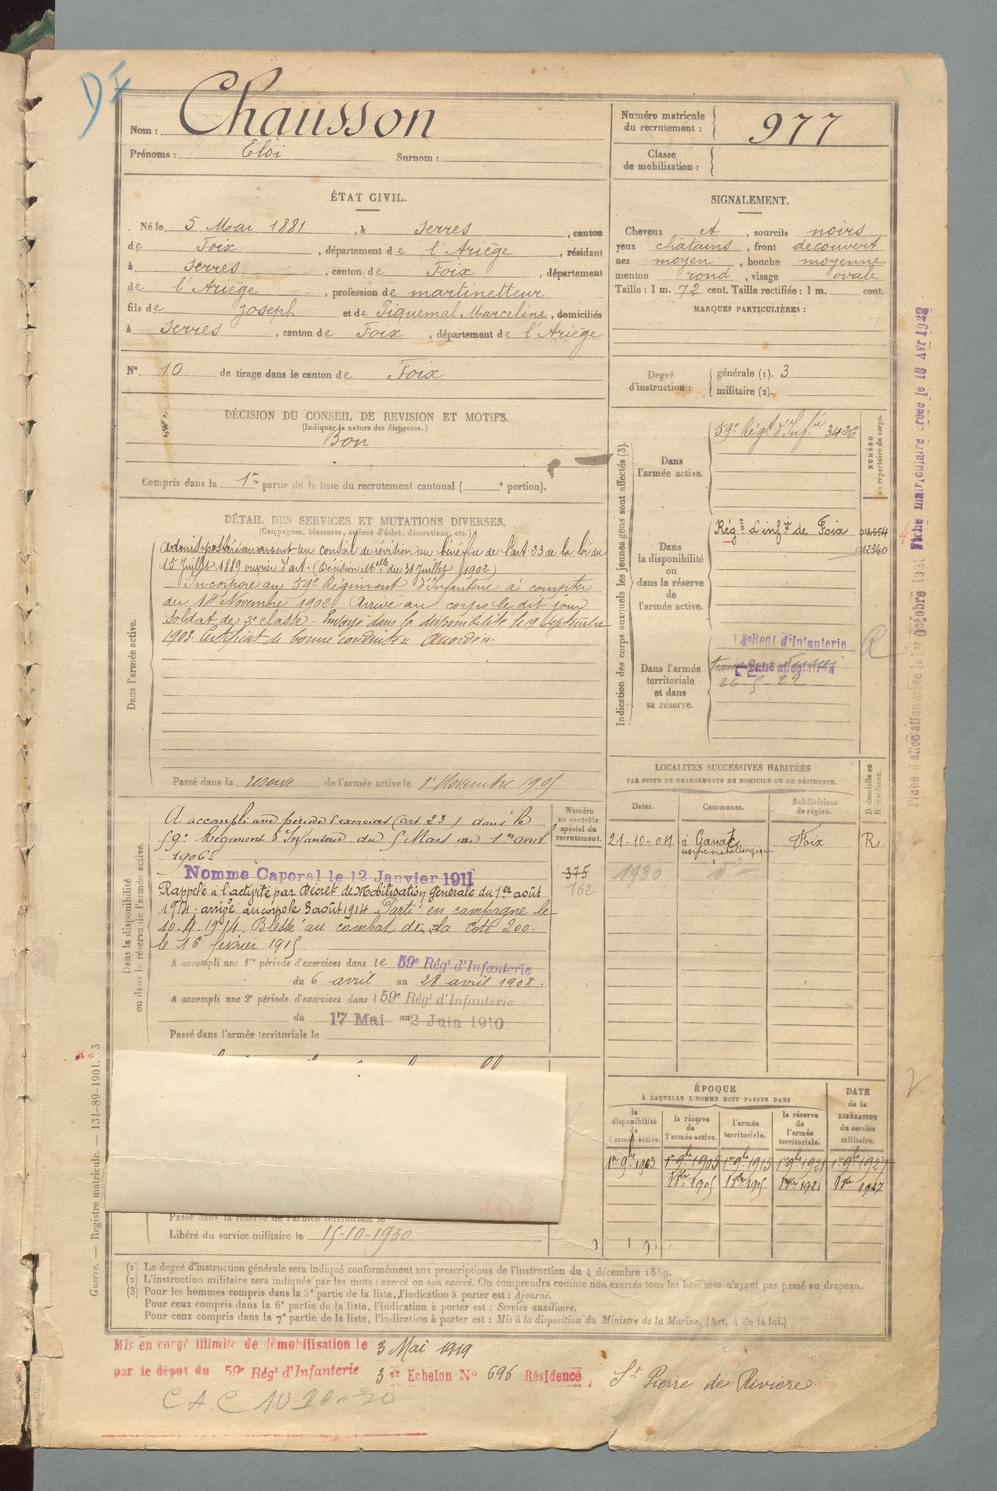 DF
Nom : Chausson
Prénoms : Eloi Surnom :
Numéro matricule du recrutement : 977
Classe de mobilisation :
ÉTAT CIVIL.
Né le 5 Mai 1881, à Serres, canton
de Foix, département de l'Ariège, résidant
à Serres, canton de Foix, département
de l'Ariège, profession de martinetteur
fils de Joseph et de Piquemal Marceline, domiciliés
à Serres, canton de Foix, département de l'Ariège
N° 10 de tirage dans le canton de Foix
SIGNALEMENT.
Cheveux et, sourcils noirs
yeux châtains, front découvert
nez moyen, bouche moyenne
menton rond, visage ovale
Taille : 1 m. 72 cent. Taille rectifiée : 1 m. cent.
MARQUES PARTICULIÈRES :
Degré d'instruction : générale (1). 3
militaire (2).
DÉCISION DU CONSEIL DE REVISION ET MOTIFS.
(Indiquer la nature des dispenses.)
Bon
Compris dans la 1re partie de la liste du recrutement cantonal ( e portion).
DÉTAIL DES SERVICES ET MUTATIONS DIVERSES.
(Campagnes, blessures, actions d'éclat, décorations, etc.)
Dans l'armée active.
Admis postérieurement au Conseil de révision au bénéfice de l'art 23 de la loi du
15 Juillet 1889 ouvrier d'art. (Décision Mlle du 31 Juillet 1902)
Incorporé au 59e Régiment d'Infanterie à compter
du 14 Novembre 1902 Arrivé au corps le dit jour
Soldat de 2e classe. Envoyé dans la disponibilité le 19 septembre
1903 Certificat de bonne Conduite Accordé.
Passé dans la réserve de l'armée active le 1er Novembre 1905
Indication des corps auxquels les jeunes gens sont affectés (3).
NUMÉRO au répertoire du corps.
Dans l'armée active.
59e Régt d'Infrie 3436
Dans la disponibilité ou dans la réserve de l'armée active.
Régt d'infrie de Foix
012340
Dans l'armée territoriale et dans sa réserve.
Regt d'Infanterie
Sans affectation
26-5-22
R
Fiche matriculaire créée le 18 Avr 1928
LOCALITÉS SUCCESSIVES HABITÉES
PAR SUITE DE CHANGEMENTS DE DOMICILE OU DE RÉSIDENCE.
Dates. Communes. Subdivisions de région. D domicile ou R résidence.
21-10-04 à Ganac usine métallurgique Foix R
1930
Dans la disponibilité ou dans la réserve de l'armée active.
Numéro au contrôle spécial du recrutement.
375
162
A accompli une période d'exercices (art 23) dans le
59e Régiment d'Infanterie du 5 Mars au 1er avril
1906
Nommé Caporal le 12 Janvier 1911
Rappelé à l'activité par Décret de Mobilisation générale du 1er août
1914 arrivé au corps le 3 août 1914 Parti en campagne le
10-9-1914. Blessé au combat de la Cote 200.
le 16 février 1915
A accompli une 1re période d'exercices dans le 59e Régt d'Infanterie
du 6 avril au 28 avril 1908.
A accompli une 2e période d'exercices dans l 59e Régt d'Infanterie
du 17 Mai au 2 Juin 1910
Passé dans l'armée territoriale le
ÉPOQUE
À LAQUELLE L'HOMME DOIT PASSER DANS
la disponibilité de l'armée active. la réserve de l'armée active. l'armée territoriale. la réserve de l'armée territoriale. DATE de la LIBÉRATION du service militaire.
1er 9bre 1903 1er 9bre 1905 1er 9bre 1915 1er 9bre 1921 1er 9bre 1927
Passé dans la réserve de l'armée territoriale le
Libéré du service militaire le 15-10-1930
(1) Le degré d'instruction générale sera indiqué conformément aux prescriptions de l'instruction du 4 décembre 1889.
(2) L'instruction militaire sera indiquée par les mots : exercé ou non exercé. On comprendra comme non exercés tous les hommes n'ayant pas passé au drapeau.
(3) Pour les hommes compris dans la 5e partie de la liste, l'indication à porter est : Ajourné.
Pour ceux compris dans la 6e partie de la liste, l'indication à porter est : Service auxiliaire.
Pour ceux compris dans la 7e partie de la liste, l'indication à porter est : Mis à la disposition du Ministre de la Marine. (Art. 4 de la loi.)
Guerre. — Registre matricule. — 131-89-1901. 3
Mis en congé illimité de démobilisation le 3 Mai 1919
par le dépôt du 59e Régt d'Infanterie 3e Echelon No 696 Résidence St Pierre de Rivière
C A C